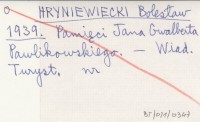 HRYNIEWIECKI Bolesław
1939. Pamięci Jana Gwalberta
Pawlikowskiego. — Wiad.
Turyst. nr
BT/010/0367